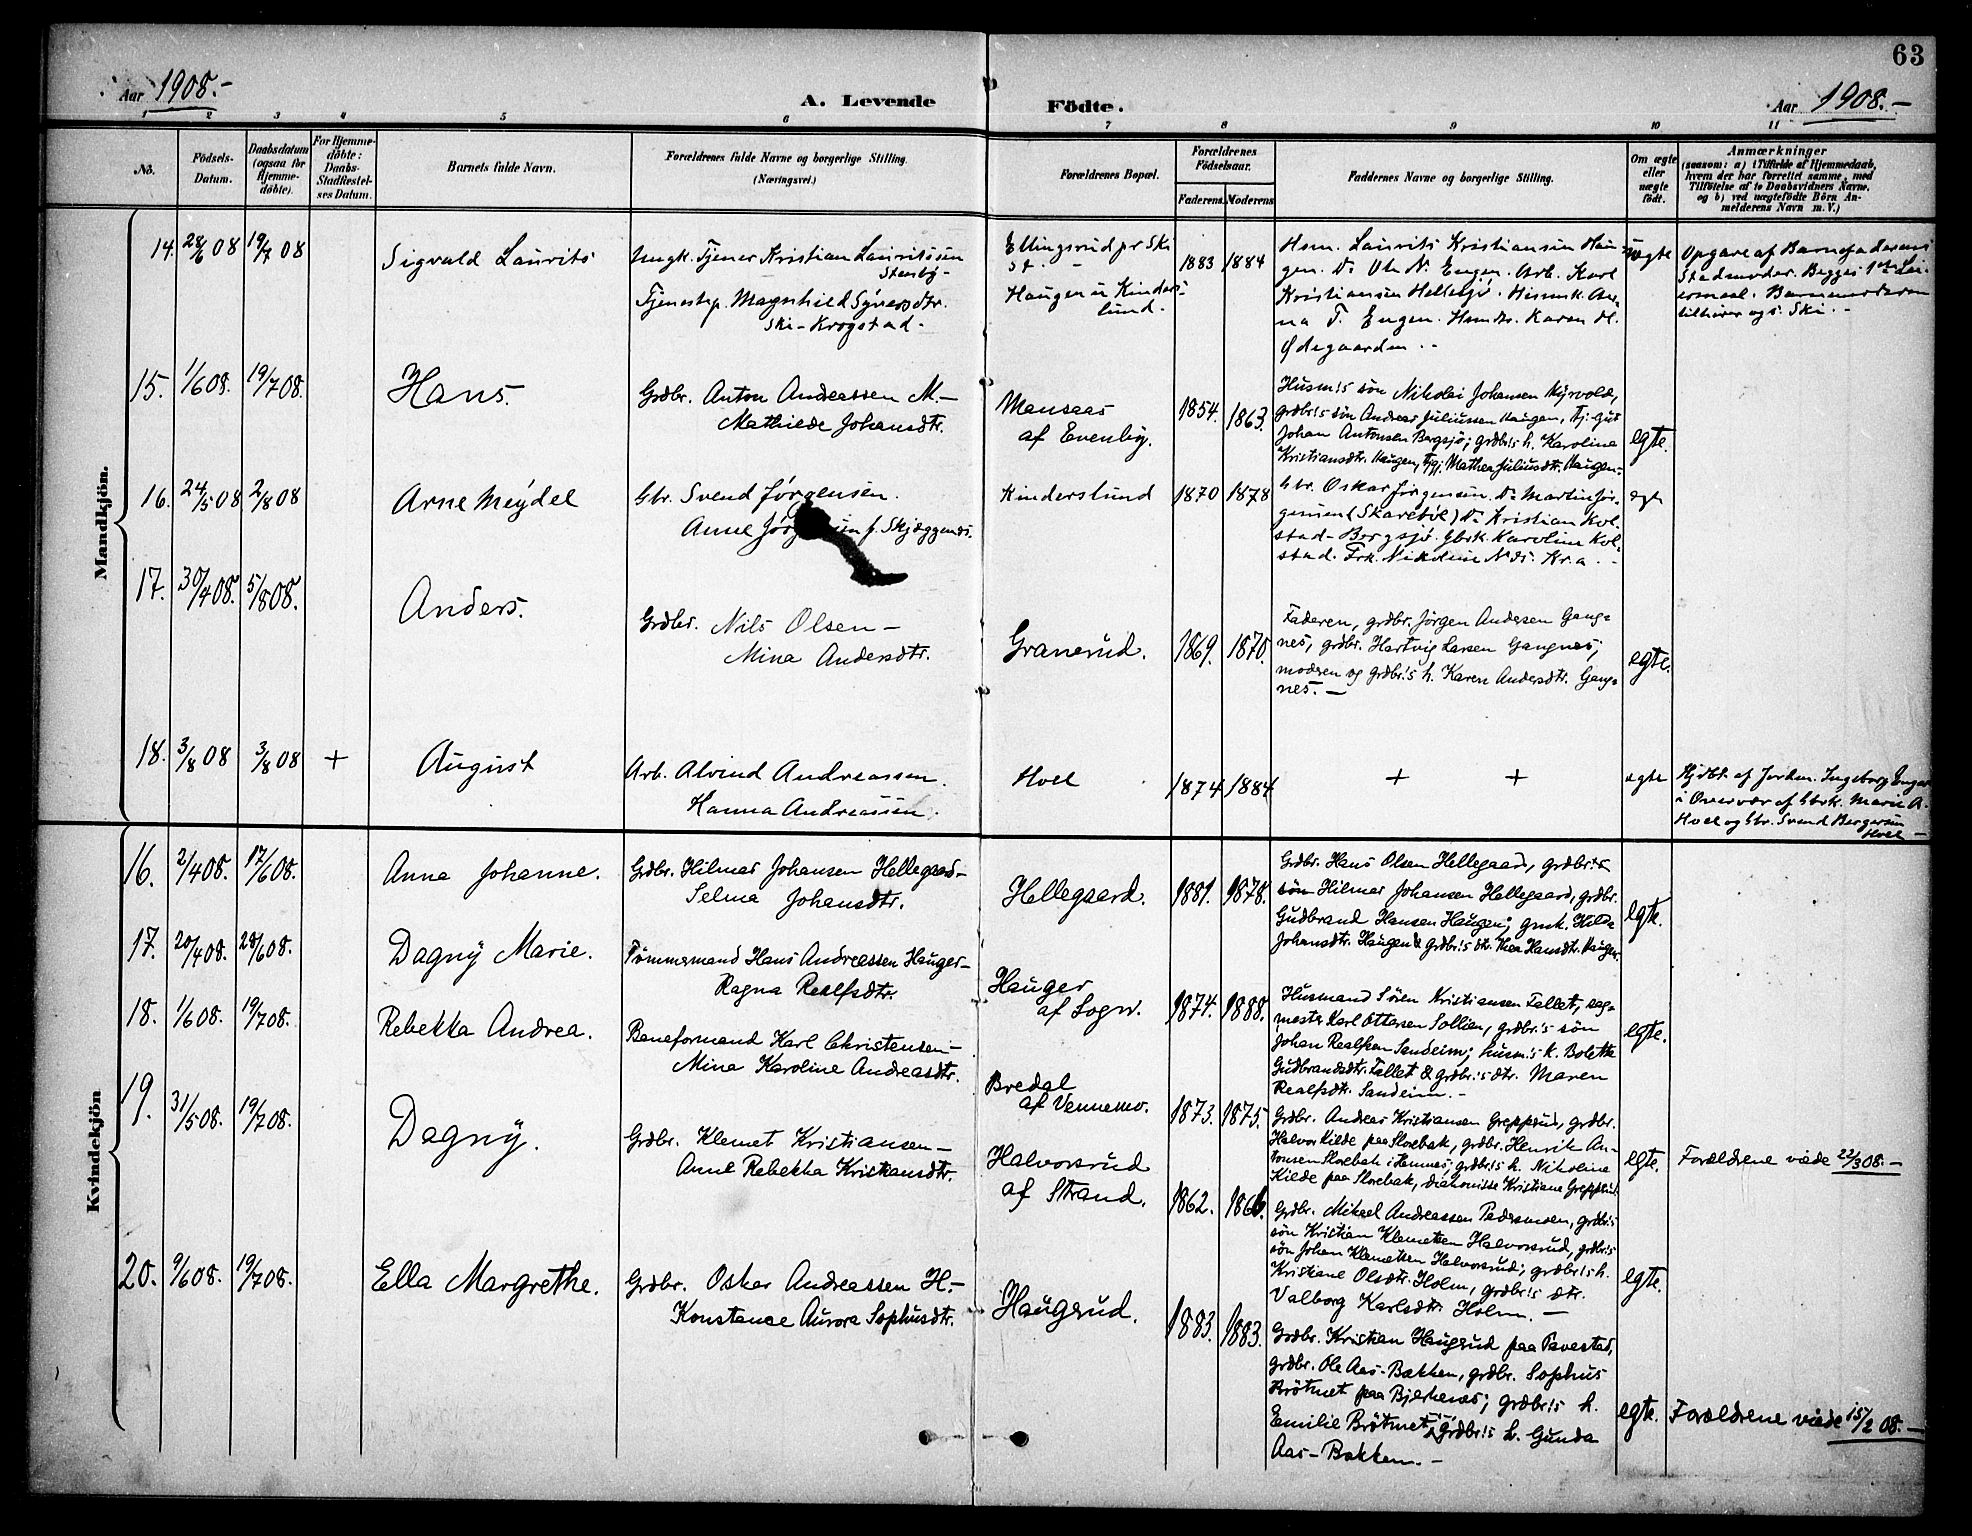 63
Aar 1908.-
A. Levende
Födte.
Aar 1908.-
1 2 3 4 5 6 7 8 9 10 11
No.
Födsels-
Datum.
Daabsdatum
(ogsaa for
Hjemme-
döbte).
For Hjemme-
döbte:
Daabs-
Stadfestel-
ses Datum.
Barnets fulde Navn.
Forældrenes fulde Navne og borgerlige Stilling.
(Næringsvei.)
Forældrenes Bopæl.
Forældrenes
Födselsaar.
Faderens. Moderens
Faddernes Navne og borgerlige Stilling.
Om ægte
eller
uægte
født.
Anmærkninger
(saasom: a) i Tilfælde af Hjemmedaab,
hvem der har forrettet samme, med
Tilföielse af to Daabsvidners Navne,
og b) ved uægtefödte Börn An-
melderens Navn m. V.)
Mandkjön.
14. 28/6 08 19/7 08
Sigvald Laurits
Ungk. Tjener Kristian Lauritssen
Stenby-
Tjenestp. Magnhild Syversdtr.
Ski-Krogstad.
Ellingsrud pr Ski
st. -
Haugen u Kinders-
lund.
1883 1884
Hsm. Laurits Kristiansen Hau-
gen. Do Ole N. Engen. Arb. Karl
Kristiansen Hellesjø. Hsmk. An-
na T. Engen. Hsmdtr. Karen M.
Ødegaarden..
uægte
Opgave af Barnefaderens
Stedmoder. Begges 1ste Lei-
ermaal. Barnemoderen
tilhører ogs. Ski.-
15. 1/6 08. 19/7 08.
Hans.
Grdbr. Anton Andreassen M-
Mathilde Johansdtr.
Mansaas
af Evenby.
1854. 1863.
Husm's søn Nikolai Johansen Myrvold,
grdbr's søn Andreas Juliussen Haugen, tj.gut
Johan Antonsen Bergsjø; grdbr's h. Karoline
Kristiansdtr. Haugen, tjpg. Mathea Juliusdtr. Haugen-
egte.
16. 24/5 08 2/8 08
Arne Meydel
Gbr. Svend Jørgensen.
Anne f. Skjæggenes.
Kinderslund
1870 1878
Gbr. Oskar Jørgensen. Do Martin Jør-
gensen (Skarebøl) Do Kristian Kol-
stad-Bergsjø. Gbrk. Karoline Kol-
stad. Frk. Nikoline Kr.a.-
egt
17. 30/4 08. 5/8 08.
Anders.
Grdbr. Nils Olsen-
Mina Andersdtr.
Granerud.
1869. 1870.
Faderen, grdbr. Jørgen Andersen Gang-
nes, grdbr. Hartvig Larsen Gangnes;
moderen og grdbr's h. Karen Andersdtr. Gang-
nes.-
egte.
18. 3/8 08 3/8 08 +
August
Arb. Alvind Andreassen.
Hanna Andreassen.
Hoel
1874 1884
+ +
egte
Hjdbt. af Jordm. Ingeborg Enger
i Overvær af Gbrk. Marie A.
Hoel og Gbr. Svend Bergersen
Hoel-
Kvindekjön
16. 2/4 08. 17/6 08.
Anna Johanne.
Grdbr. Hilmar Johansen Hellegaard-
Selma Johansdtr.
Hellegaard.
1881. 1878.
Grdbr. Hans Olsen Hellegaard, grdbr's
søn Hilmar Johansen Hellegaard, grdbr.
Gudbrand Hansen Haugen; gmk. Hilda
Johansdtr. Haugen & grdbr's dtr. Thea Hansdtr. Haugen
egte.
17. 20/4 08. 28/6 08.
Dagny Marie.
Tømmermand Hans Andreassen Hauger-
Ragna Realfsdtr.
Hauger
af Sogn.
1874. 1888.
Husmand Søren Kristiansen Fallet, sag-
mester Karl Ottersen Sollien, grdbr's søn
Johan Realfsen Sandeim; husm's k. Bolette
Gudbrandsdtr. Fallet & grdbr's dtr. Maren
Realfsdtr. Sandeim.-
egte.
18. 1/6 08. 19/7 08.
Rebekka Andrea.
Baneformand Karl Christensen-
Mina Karoline Andreasdtr.
Bredal
af Vennemo.
1873. 1875.
Grdbr. Andreas Kristiansen Grepperud, grdbr.
Halvor Kilde paa Slorebak, grdbr. Henrik An-
tonsen Slorebak i Hemnes; grdbr's h. Nikoline
Kilde paa Slorebak, diakonisse Kristiane Grepperud
egte.
Forældrene viede 22/3 08.-
19. 31/5 08. 19/7 08.
Dagny.
Grdbr. Klemet Kristiansen-
Anne Rebekka Kristiansdtr.
Halvorsrud
af Strand.
1862. 1866.
Grdbr. Mikael Andreassen Pedersmoen, grdbr's
søn Kristian Klemetsen Halvorsrud, grdbr's
søn Johan Klemetsen Halvorsrud; grdbr's h.
Kristiane Olsdtr. Holm, grdbr's dtr.
Valborg Karlsdtr. Holm.-
egte.
20. 9/6 08. 19/7 08.
Ella Margrethe.
Grdbr. Oskar Andreassen H.-
Konstance Aurora Sophusdtr.
Haugerud.
1883. 1883.
Grdbr. Kristian Haugerud paa Tavestad,
grdbr. Ole Aas-Bakken, grdbr. Sophus
Brøtmet paa Bjerkenes; grdbr's h.
Emilie Brøtmet & grdbr's h. Gunda
Aas-Bakken.-
egte.
Forældrene viede 15/2 08.-